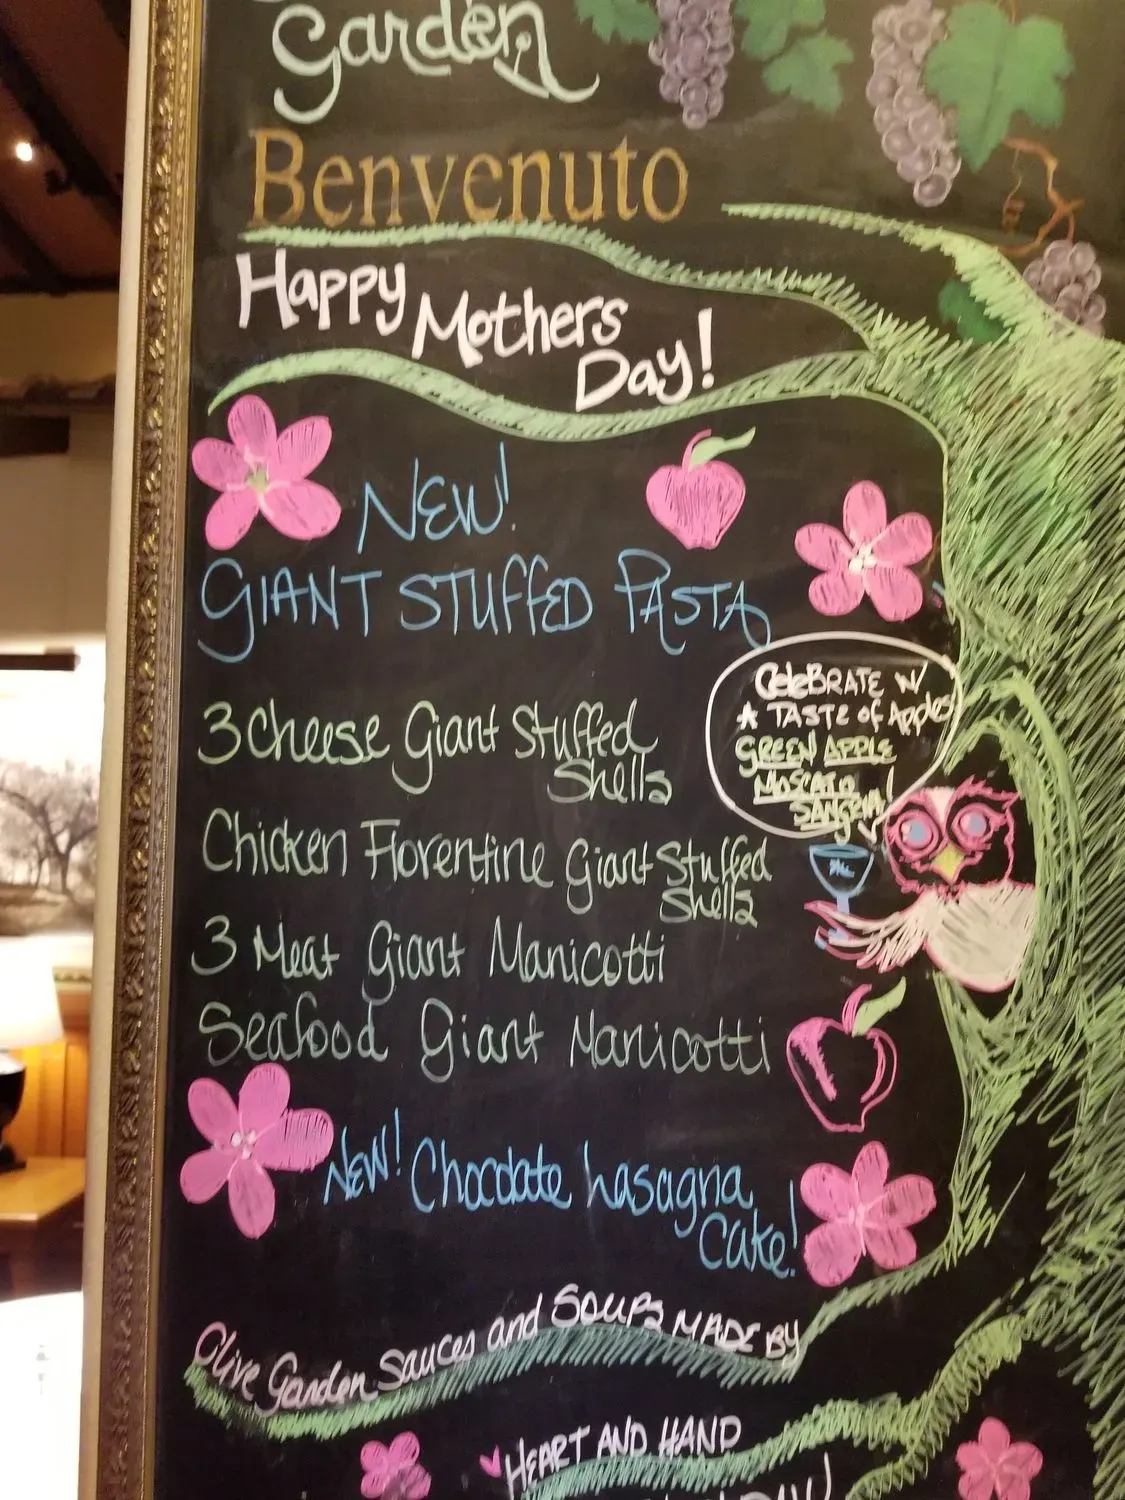 Garden
Benvenuto
Happy Mothers
Day!
NEW!
GIANT STUFFED PASTA
3 Cheese Giant Stuffed
Shells
Chicken Florentine Giant Stuffed
Shells
3 Meat Giant Manicotti
Seafood Giant Manicotti
CELEBRATE W/
A TASTE of Apples
GREEN APPLE
MOSCATO
SANGRIA!
NEW! Chocolate Lasagna
Cake!
Olive Garden Sauces and SOUPS MADE BY
HEART AND HAND